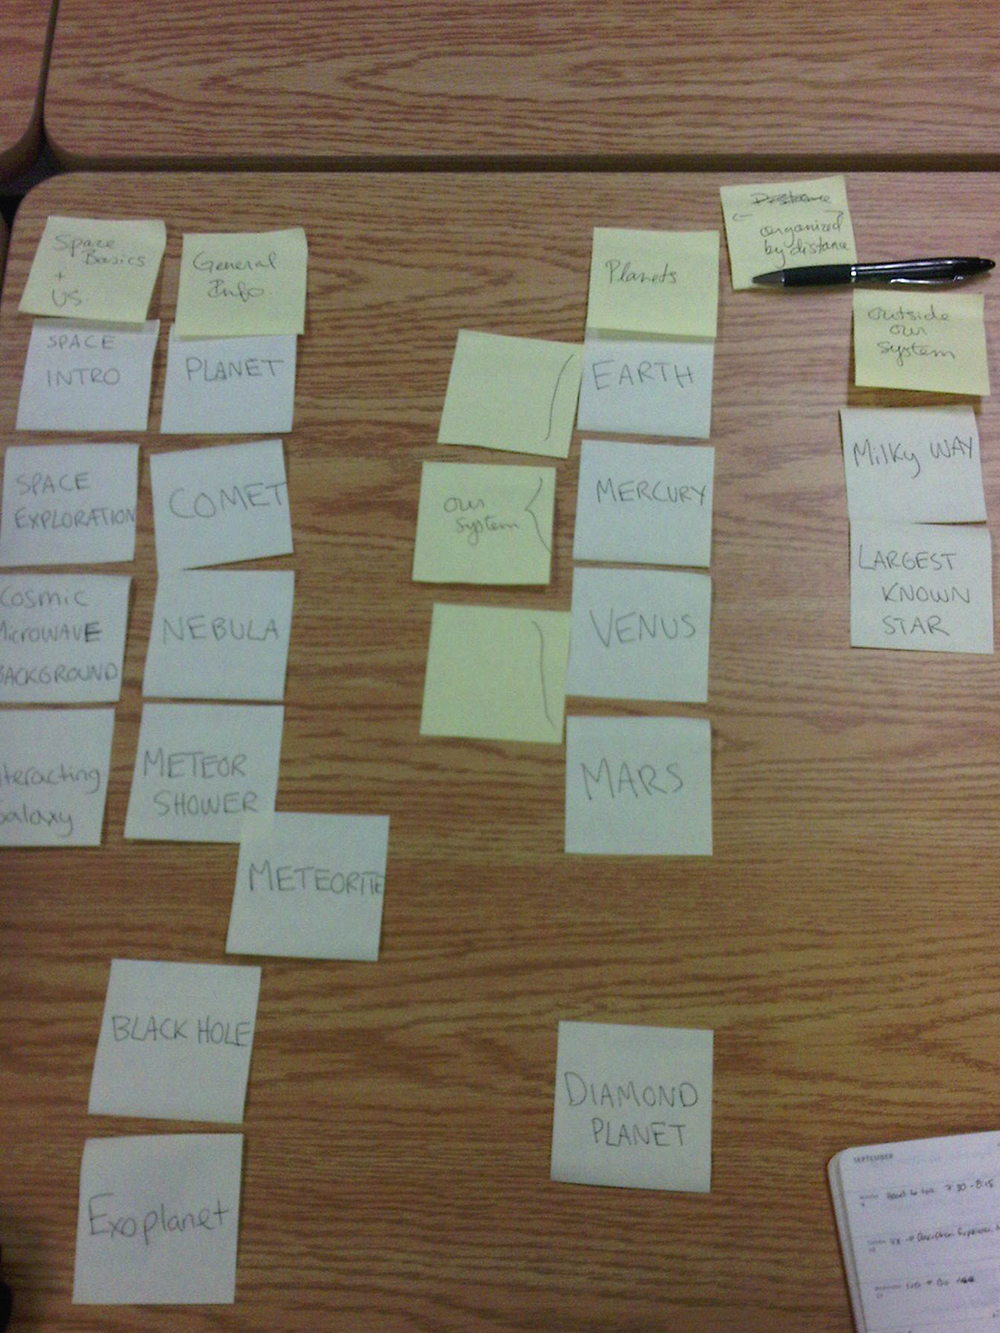 Space
Basics
+
US
SPACE
INTRO
SPACE
EXPLORATION
COSMIC
MICROWAVE
BACKGROUND
teracting
alaxy
General
Info.
PLANET
COMET
NEBULA
METEOR
SHOWER
METEORITE
BLACK HOLE
Exoplanet
our
system
Planets
EARTH
MERCURY
VENUS
MARS
DIAMOND
PLANET
Distance
organized
by distance
outside
our
system
Milky WAY
LARGEST
KNOWN
STAR
SEPTEMBER